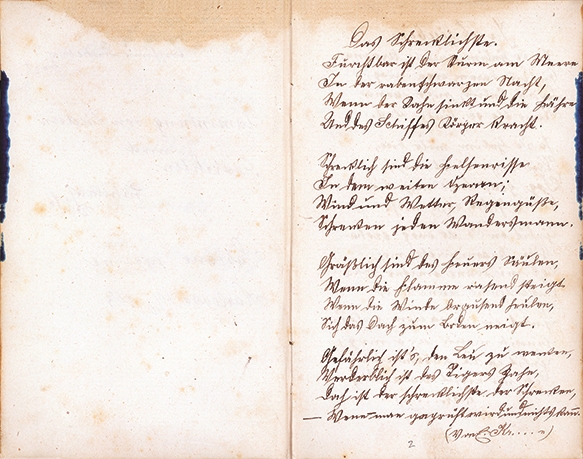 Das Schrecklichste.
Furchtbar ist der Sturm am Meere
In der rabenschwarzen Nacht,
Wenn der Kahn sinkt und die Fähre
Und des Schiffes Körper kracht.
Schrecklich sind die Felsenrisse
In dem weiten Ozean;
Wind und Wetter, Regengüsse,
Schrecken jeden Wandersmann.
Gräßlich sind des Feuers Säulen,
Wenn die Flamme rasend steigt
Wenn die Winde brausend heulen,
Sich das Dach zum Boden neigt.
Gefährlich ist's, den Leu zu wecken,
Verderblich ist des Tigers Zahn,
Doch ist der schrecklichste der Schrecken,
— Wenn man geprüft wird und nichts kann.
(Von
2